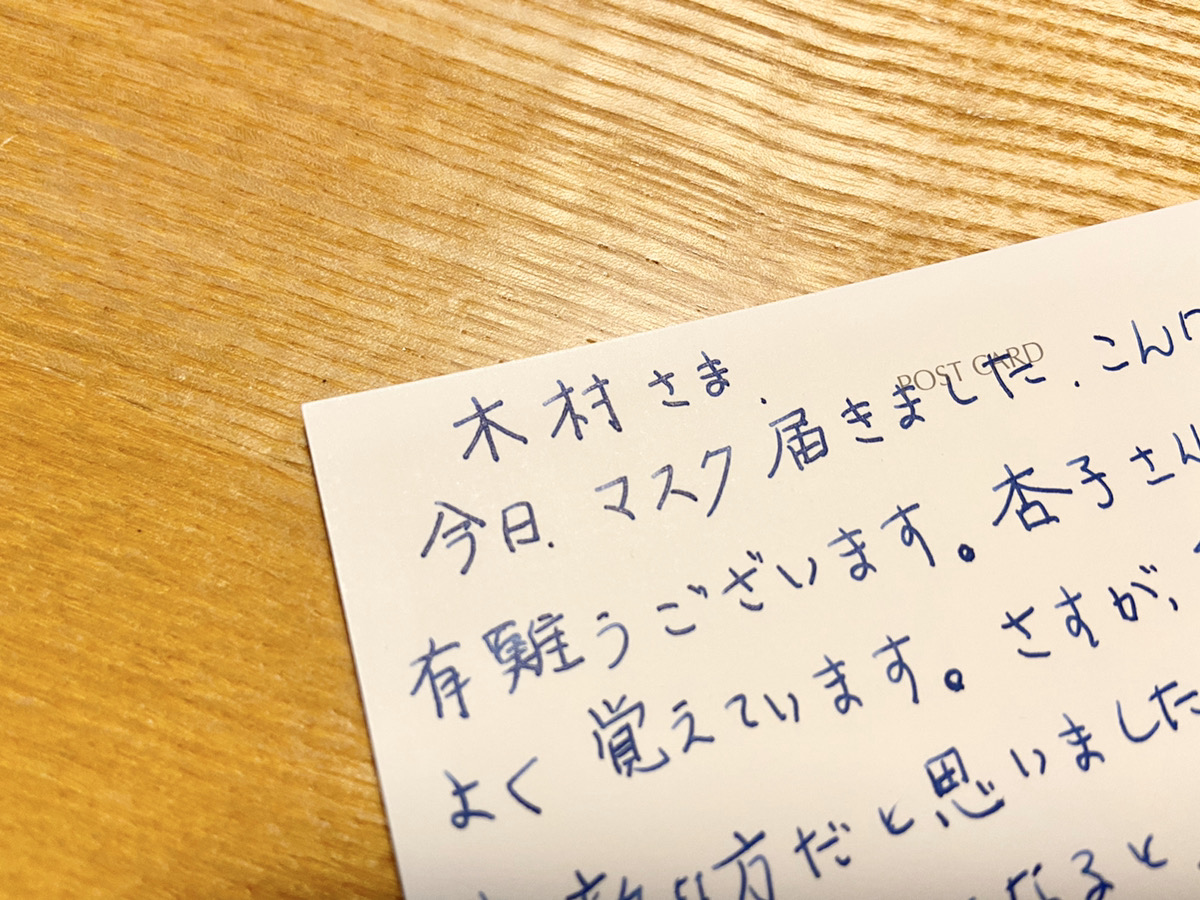 POST CARD
木村さま.
今日.マスク届きました.こん
有難うございます。杏子さん
よく覚えています。さすが、
方だと思いました
なると